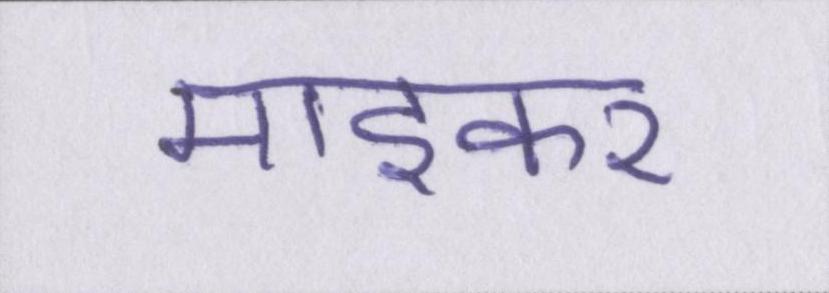 माइकर